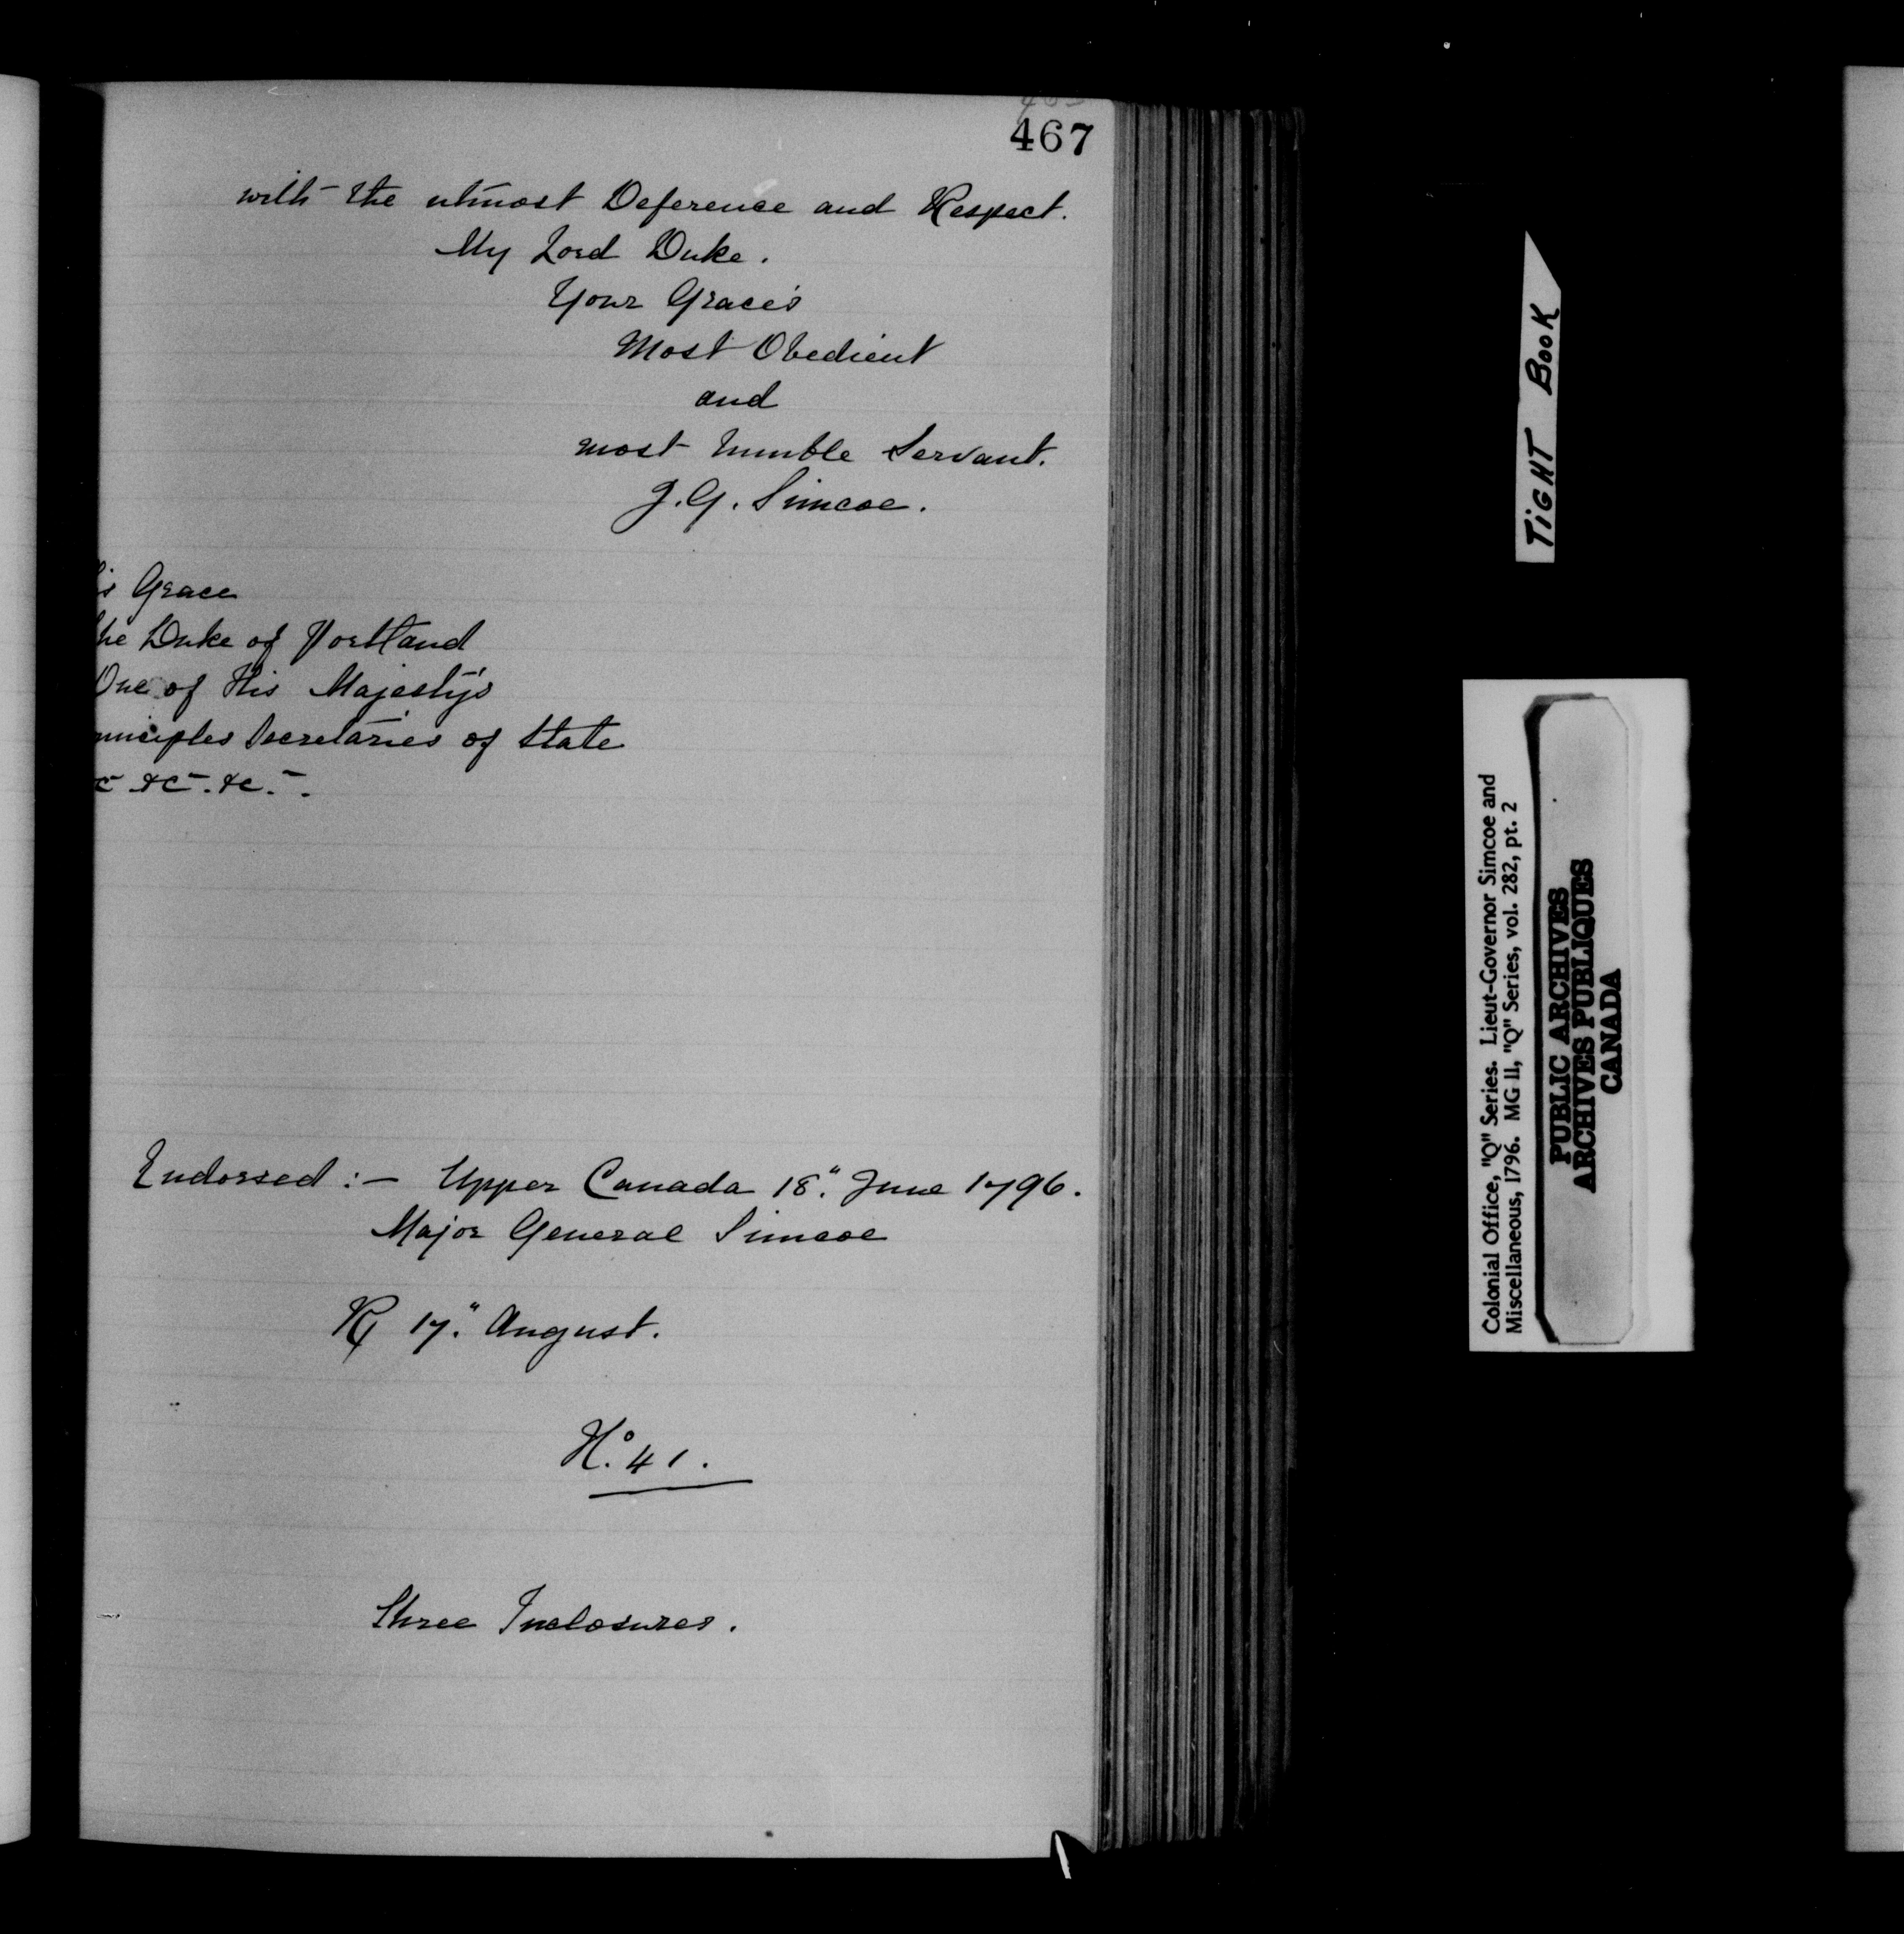 467
with the utmost Deference and Respect.
My Lord Duke.
Your Grace's
Most Obedient
and
most humble Servant.
J. G. Simcoe.
is Grace
he Duke of Portland
One of His Majesty's
nciples Secretaries of State
c &c. &c.
Endorsed :— Upper Canada 18." June 1796.
Major General Simcoe
R 17." August.
No. 41.
Three Inclosures.
TIGHT BOOK
Colonial Office, "Q" Series. Lieut-Governor Simcoe and
Miscellaneous, 1796. MG 11, "Q" Series, vol. 282, pt. 2
PUBLIC ARCHIVES
ARCHIVES PUBLIQUES
CANADA